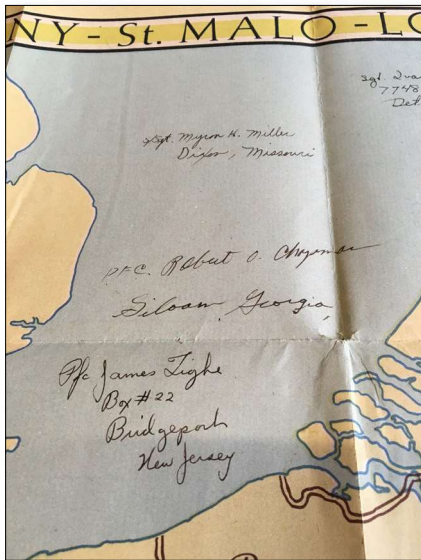 NY - St. MALO - LO
Sgt.
7748
Det
S/Sgt. Myron H. Miller
Dixon, Missouri
PFC. Robert O. Chapman
Siloam, Georgia
Pfc James Tighe
Box #22
Bridgeport
New Jersey